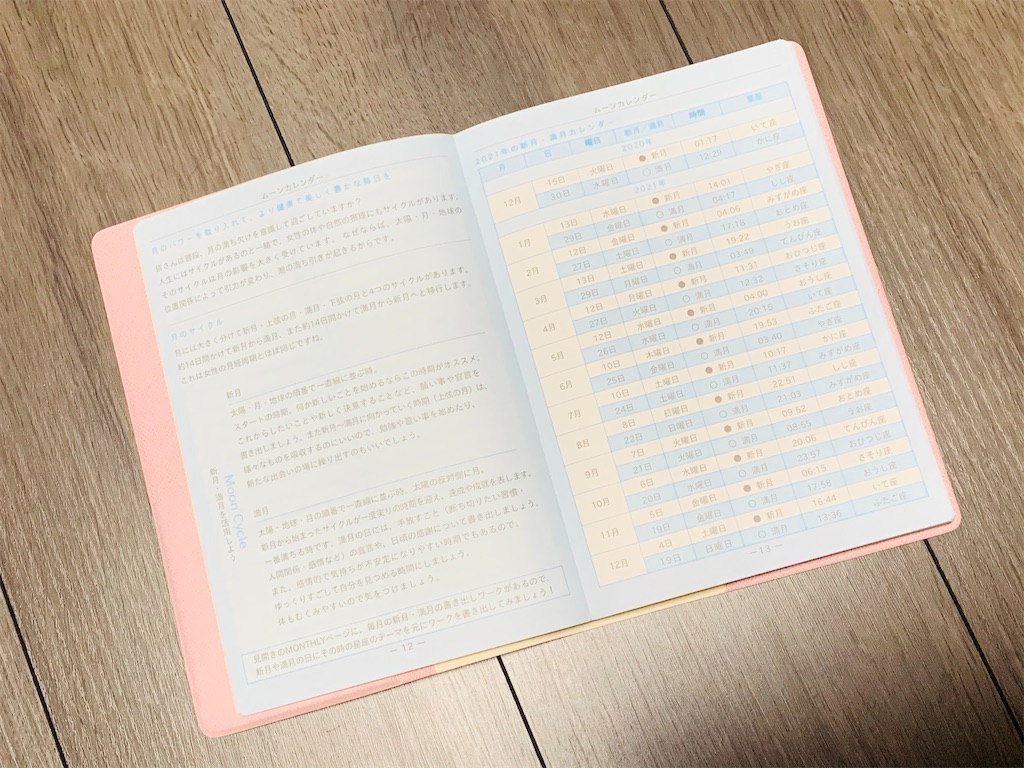 ムーンカレンダー
月のパワーを取り入れて、より健康で楽しく豊かな毎日を
皆さんは普段、月の満ち欠けを意識して過ごしていますか?
人生にはサイクルがあるのと一緒で、女性の体や自然の原理にもサイクルがあります。
そのサイクルは月の影響を大きく受けています。なぜならば、太陽・月・地球の
位置関係によって引力が変わり、潮の満ち引きが起きるからです。
月のサイクル
月には大きく分けて新月・上弦の月・満月・下弦の月と4つのサイクルがあります。
約14日間かけて新月から満月、また約14日間かけて満月から新月へと移行します。
これは女性の月経周期とほぼ同じですね。
新月・満月を活用しよう
Moon Cycle
新月
太陽・月・地球の順番で一直線に並ぶ時。
スタートの時期。何か新しいことを始めるならこの時期がオススメ。
これからしたいことや新しく決意することなど、願い事や宣言を
書き出しましょう。また新月〜満月に向かっていく時間(上弦の月)は、
様々なものを吸収するのにいいので、勉強や習い事を始めたり、
新たな出会いの場に繰り出すのもいいでしょう。
満月
太陽・地球・月の順番で一直線に並ぶ時。太陽の反対側に月。
新月から始まったサイクルが一度実りの時期を迎え、達成や成就を表します。
一番満ちる時です。満月の日には、手放すこと(断ち切りたい習慣・
人間関係・感情など)の宣言や、日頃の感謝について書き出しましょう。
また、感情的で気持ちが不安定になりやすい時期でもあるので、
ゆっくりすごして自分を見つめる時間にしましょう。
体もむくみやすいので気をつけましょう。
見開きのMONTHLYページに、毎月の新月・満月の書き出しワークがあるので、
新月や満月の日にその時の星座のテーマを元にワークを書き出してみましょう!
— 12 —
ムーンカレンダー
2021年の新月・満月カレンダー
月 日 曜日 新月・満月 時間 星座
2020年
12月 15日 火曜日 ● 新月 01:17 いて座
30日 水曜日 ○ 満月 12:29 かに座
2021年
1月 13日 水曜日 ● 新月 14:01 やぎ座
29日 金曜日 ○ 満月 04:17 しし座
2月 12日 金曜日 ● 新月 04:06 みずがめ座
27日 土曜日 ○ 満月 17:18 おとめ座
3月 13日 土曜日 ● 新月 19:22 うお座
29日 月曜日 ○ 満月 03:49 てんびん座
4月 12日 月曜日 ● 新月 11:31 おひつじ座
27日 火曜日 ○ 満月 12:32 さそり座
5月 12日 水曜日 ● 新月 04:00 おうし座
26日 水曜日 ○ 満月 20:15 いて座
6月 10日 木曜日 ● 新月 19:53 ふたご座
25日 金曜日 ○ 満月 03:40 やぎ座
7月 10日 土曜日 ● 新月 10:17 かに座
24日 土曜日 ○ 満月 11:37 みずがめ座
8月 8日 日曜日 ● 新月 22:51 しし座
22日 日曜日 ○ 満月 21:03 みずがめ座
9月 7日 火曜日 ● 新月 09:52 おとめ座
21日 火曜日 ○ 満月 08:55 うお座
10月 6日 水曜日 ● 新月 20:06 てんびん座
20日 水曜日 ○ 満月 23:57 おひつじ座
11月 5日 金曜日 ● 新月 06:15 さそり座
19日 金曜日 ○ 満月 17:58 おうし座
12月 4日 土曜日 ● 新月 16:44 いて座
19日 日曜日 ○ 満月 13:36 ふたご座
— 13 —